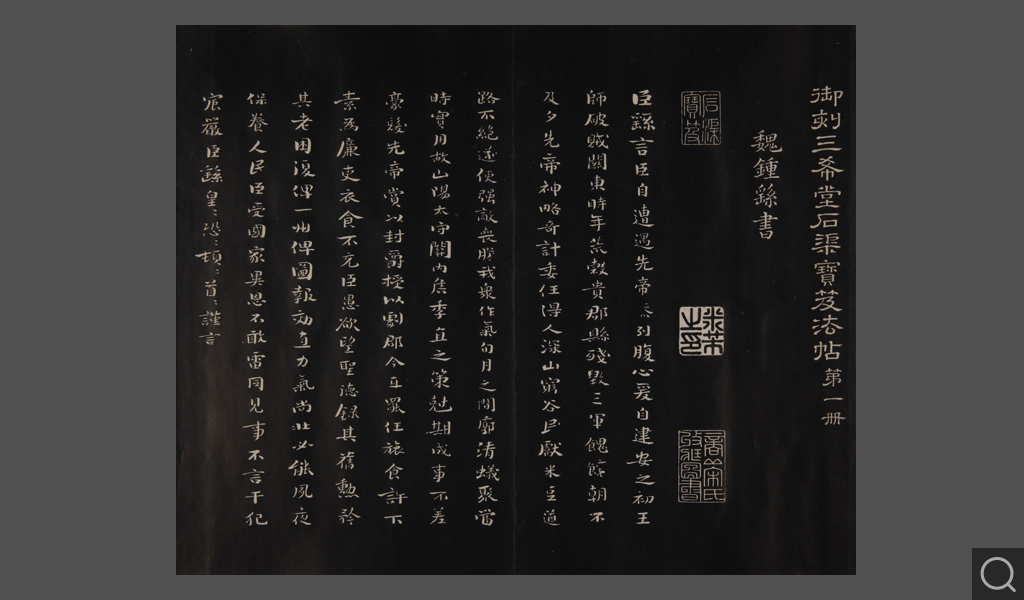 御刻三希堂石渠寶笈法帖第一冊
魏鍾繇書
臣繇言臣自遭遇先帝忝列腹心爰自建安之初王
師破賊關東時年荒穀貴郡縣殘毀三軍餽饟朝不
及夕先帝神略奇計委任得人深山窮谷民獻米豆道
路不絕遂使强敵喪膽我衆作氣旬月之間廓清蟻聚當
時實用故山陽太守關內侯季直之策尅期成事不差
豪髮先帝賞以封爵授以劇郡今直罷任旅食許下
素爲廉吏衣食不充臣愚欲望聖德錄其舊勳矜
其老困復俾一州俾圖報効直力氣尚壯必能夙夜
保養人民臣受國家異恩不敢雷同見事不言干犯
宸嚴臣繇皇:恐:頓:首:謹言